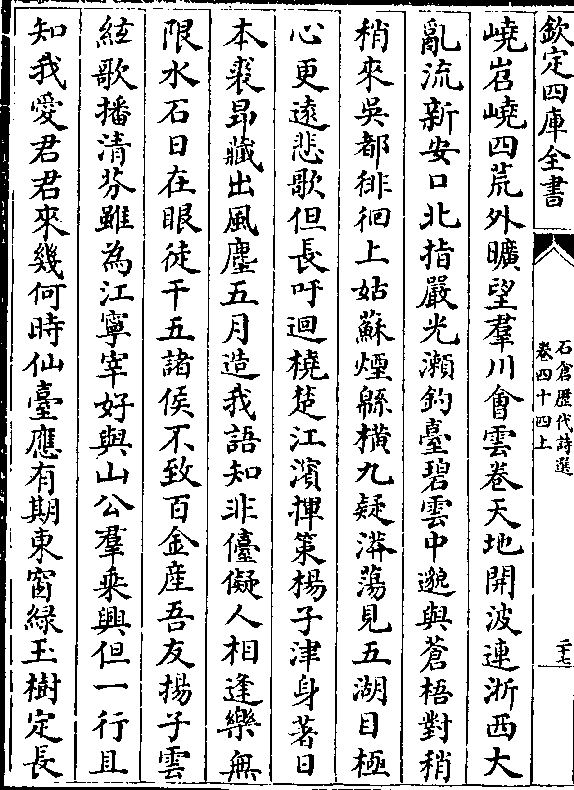 欽定四庫全書
石倉歴代詩選
卷四十四上
二十七
嶢岧嶢四荒外曠望羣川會雲卷天地開波連浙西大
亂流新安口北指嚴光瀬釣臺碧雲中邈與蒼梧對稍
稍來吳都徘徊上姑蘇煙緜橫九疑漭蕩見五湖目極
心更遠悲歌但長吁迴橈楚江濱揮策楊子津身著日
本裘昻藏出風塵五月造我語知非儓儗人相逢樂無
限水石日在眼徒干五諸侯不致百金産吾友揚子雲
絃歌播清芬雖為江寧宰好與山公羣乘興但一行且
知我愛君君來幾何時仙臺應有期東窗緑玉樹定長